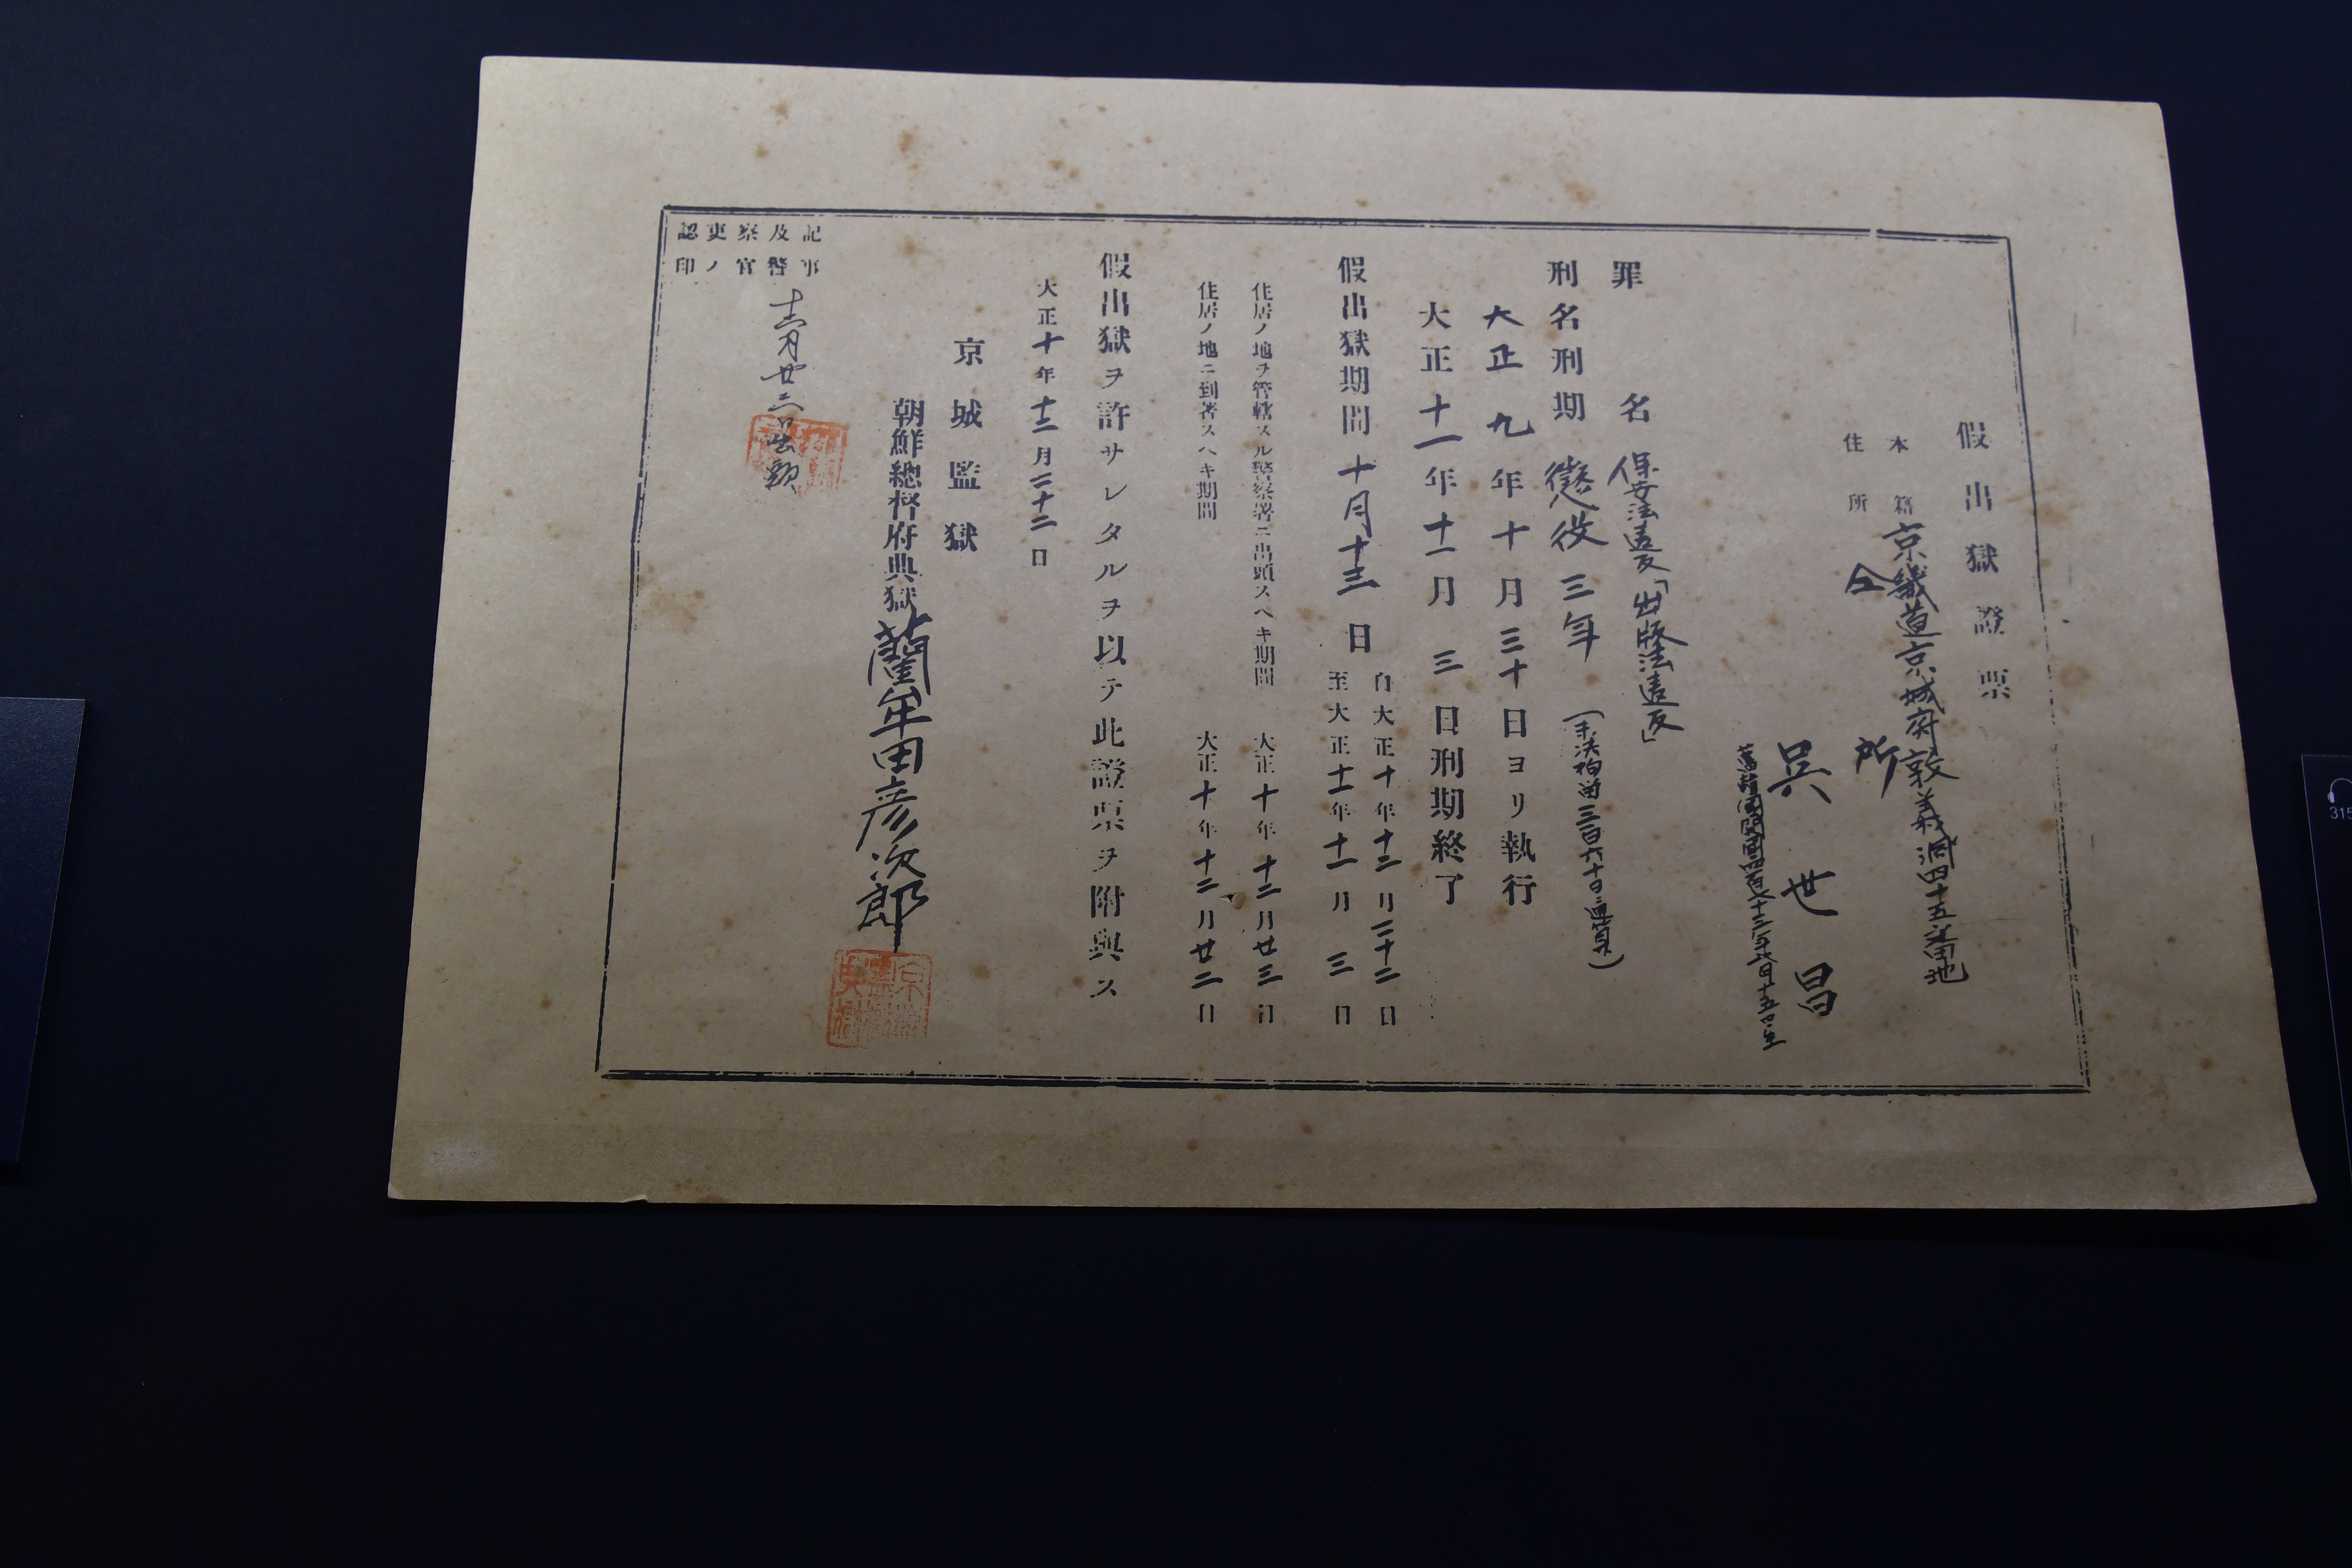 假出獄證票
本籍 京畿道京城府敦義洞四十五番地
住所 仝所
呉世昌
罪名 保安法違反「出版法違反」
刑名刑期 懲役三年(未決拘留三百六十日通算ス)
大正九年十月三十日ヨリ執行
大正十一年十一月三日刑期終了
假出獄期間 十月十三日
自大正十年十二月二十二日
至大正十一年十一月三日
住居ノ地ヲ管轄スル警察署ニ出頭スヘキ期間 大正十年十二月廿三日
住居ノ地ニ到著スヘキ期間 大正十年十二月廿二日
假出獄ヲ許サレタルヲ以テ此證票ヲ附與ス
大正十年十二月二十二日
京城監獄
朝鮮總督府典獄 藺牟田彦次郎
記事及警察官吏ノ認印
十二月廿二日出頭
315